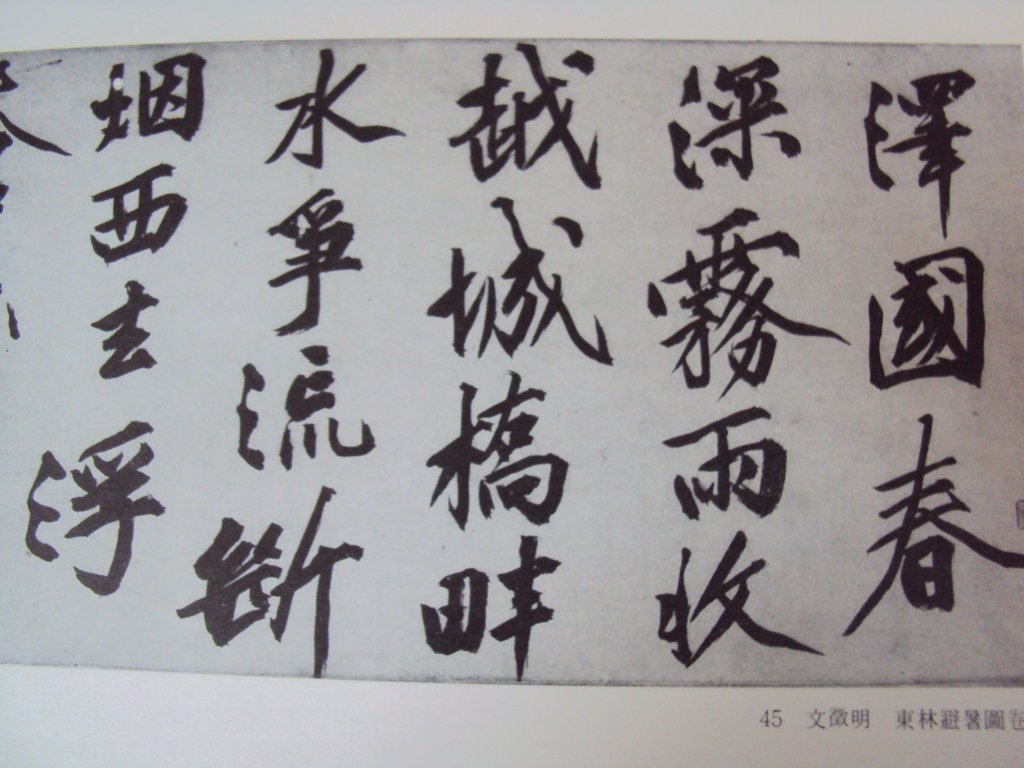 澤國春
深霧雨收
越城橋畔
水爭流斷
烟西去浮
45 文徵明 東林避暑圖卷